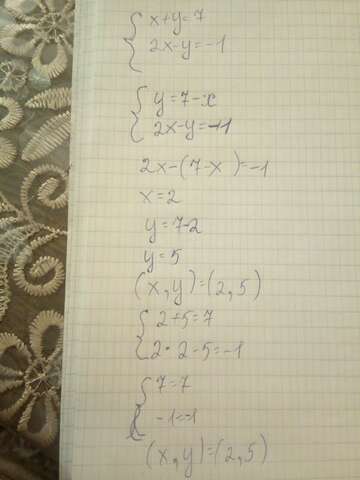 { x+y=7
2x-y=-1
{ y=7-x
2x-y=-1
2x-(7-x)=-1
x=2
y=7-2
y=5
(x,y)=(2,5)
{ 2+5=7
2·2-5=-1
{ 7=7
-1=-1
(x,y)=(2,5)